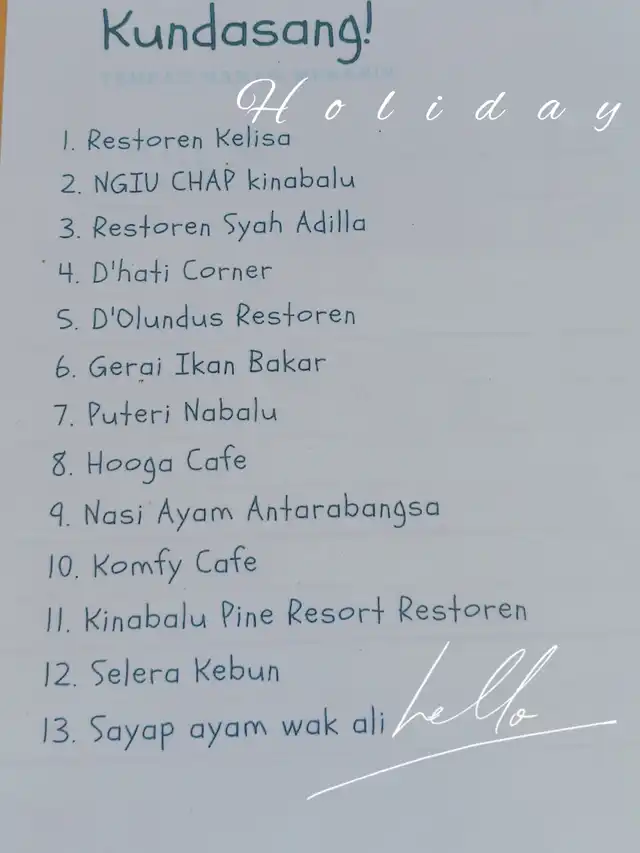 Kundasang!
Holiday
1. Restoren Kelisa
2. NGIU CHAP kinabalu
3. Restoren Syah Adilla
4. D'hati Corner
5. D'Olundus Restoren
6. Gerai Ikan Bakar
7. Puteri Nabalu
8. Hooga Cafe
9. Nasi Ayam Antarabangsa
10. Komfy Cafe
11. Kinabalu Pine Resort Restoren
12. Selera Kebun
13. Sayap ayam wak ali
hello